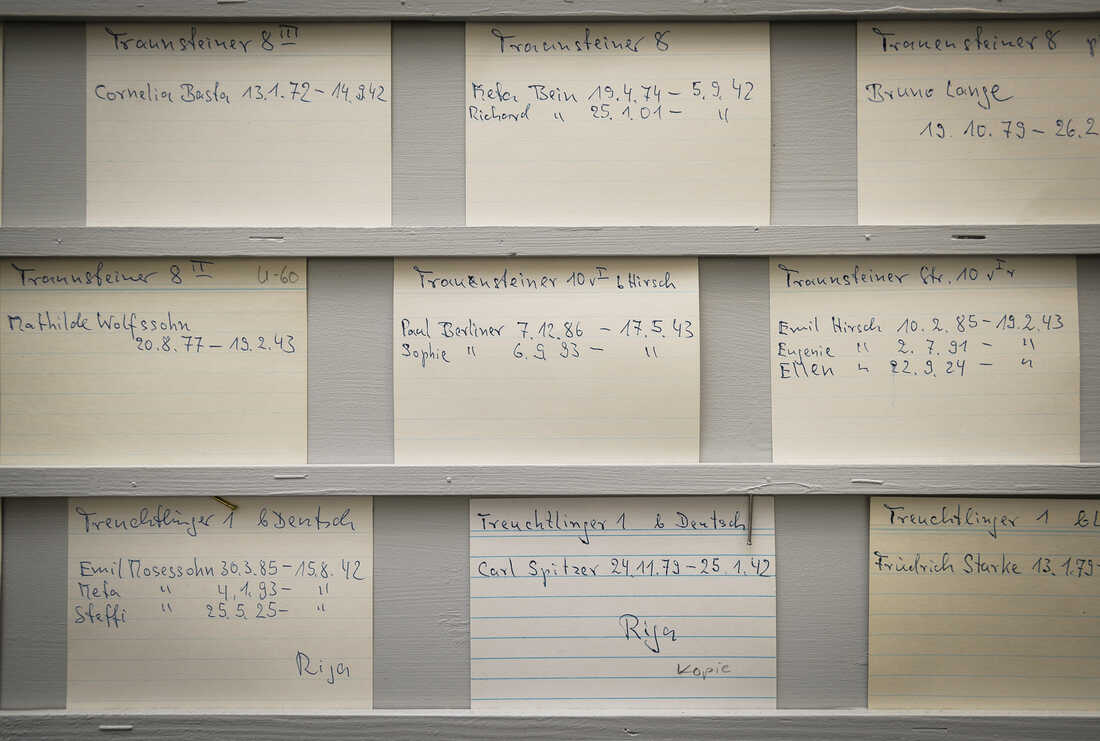 Traunsteiner 8 III
Cornelia Basta 13.1.72 – 14.9.42
Traunsteiner 8
Meta Bein 19.4.74 – 5.9.42
Richard " 25.1.01 – "
Traunensteiner 8
Bruno Lange
19.10.79 – 26.2
Traunsteiner 8 II U-60
Mathilde Wolfssohn
20.8.77 – 19.2.43
Traunsteiner 10 v I b Hirsch
Paul Berliner 7.12.86 – 17.5.43
Sophie " 6.9.93 – "
Traunsteiner Str. 10 v I r
Emil Hirsch 10.2.85 – 19.2.43
Eugenie " 2.7.91 – "
Ellen " 22.9.24 – "
Treuchtlinger 1 b Deutsch
Emil Mosessohn 30.3.85 – 15.8.42
Meta " 4.1.93 – "
Steffi " 25.5.25 – "
Riga
Treuchtlinger 1 b Deutsch
Carl Spitzer 24.11.79 – 25.1.42
Riga
Kopie
Treuchtlinger 1 b L
Friedrich Starke 13.1.79 –